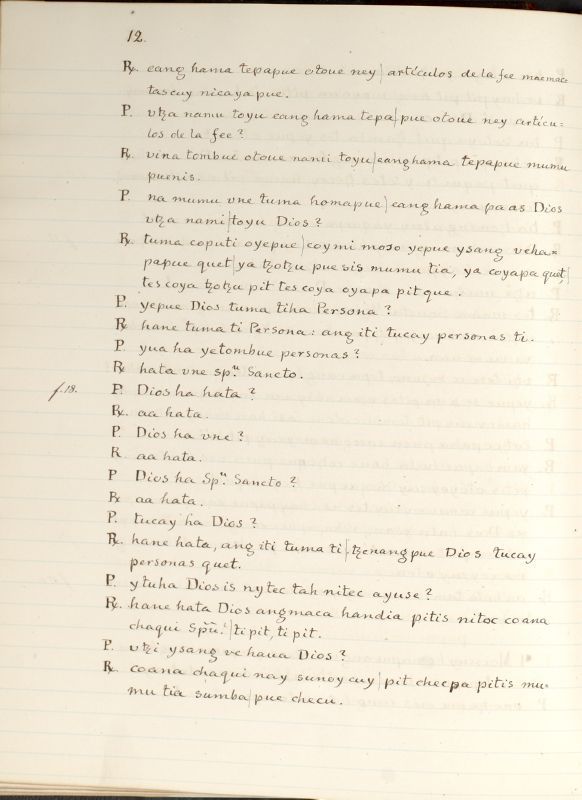 12.
R. eang hama tepapue otoue ney| artículos de la fee mnemace
tascuy nicaya pue.
P. vtza namu toyu eang hama tepa|pue otoue ney artícu=
los de la fee?
R. vina tombue otoue nanii toyu|eang hama tepapue mumu
puenis.
P. na mumu vne tuma homapue| eang hama pa as Dios
vtza nami|toyu Dios?
R. tuma coputi oyepue| coymi moso yepue ysang veha=
papue quet| ya tzotzu pue sis mumu tia, ya coyapa quet|
tes coya tzotzu pit tes coya oyapa pit que.
P. yepue Dios tuma tiha Persona?
R. hane tuma ti Persona: ang iti tucay personas ti.
P. yua ha yetombue personas?
R. hata vne spu. Sancto.
f. 18. P. Dios ha hata?
R. aa hata.
P. Dios ha vne?
R aa hata.
P Dios ha Spu. Sancto?
R. aa hata.
P. tucay ha Dios?
R. hane hata, ang iti tuma ti| tzenang pue Dios tucay
personas quet.
P. y tuha Dios is nytec tah nitec ayuse?
R. hane hata Dios angmaca handia pitis nitoc coana
chaqui Spũ.| ti pit, ti pit.
P. vtzi ysang ve haua Dios?
R. coana chaqui nay sunoy cuy| pit checpa pitis mu-
mu tia sumba| pue checu.